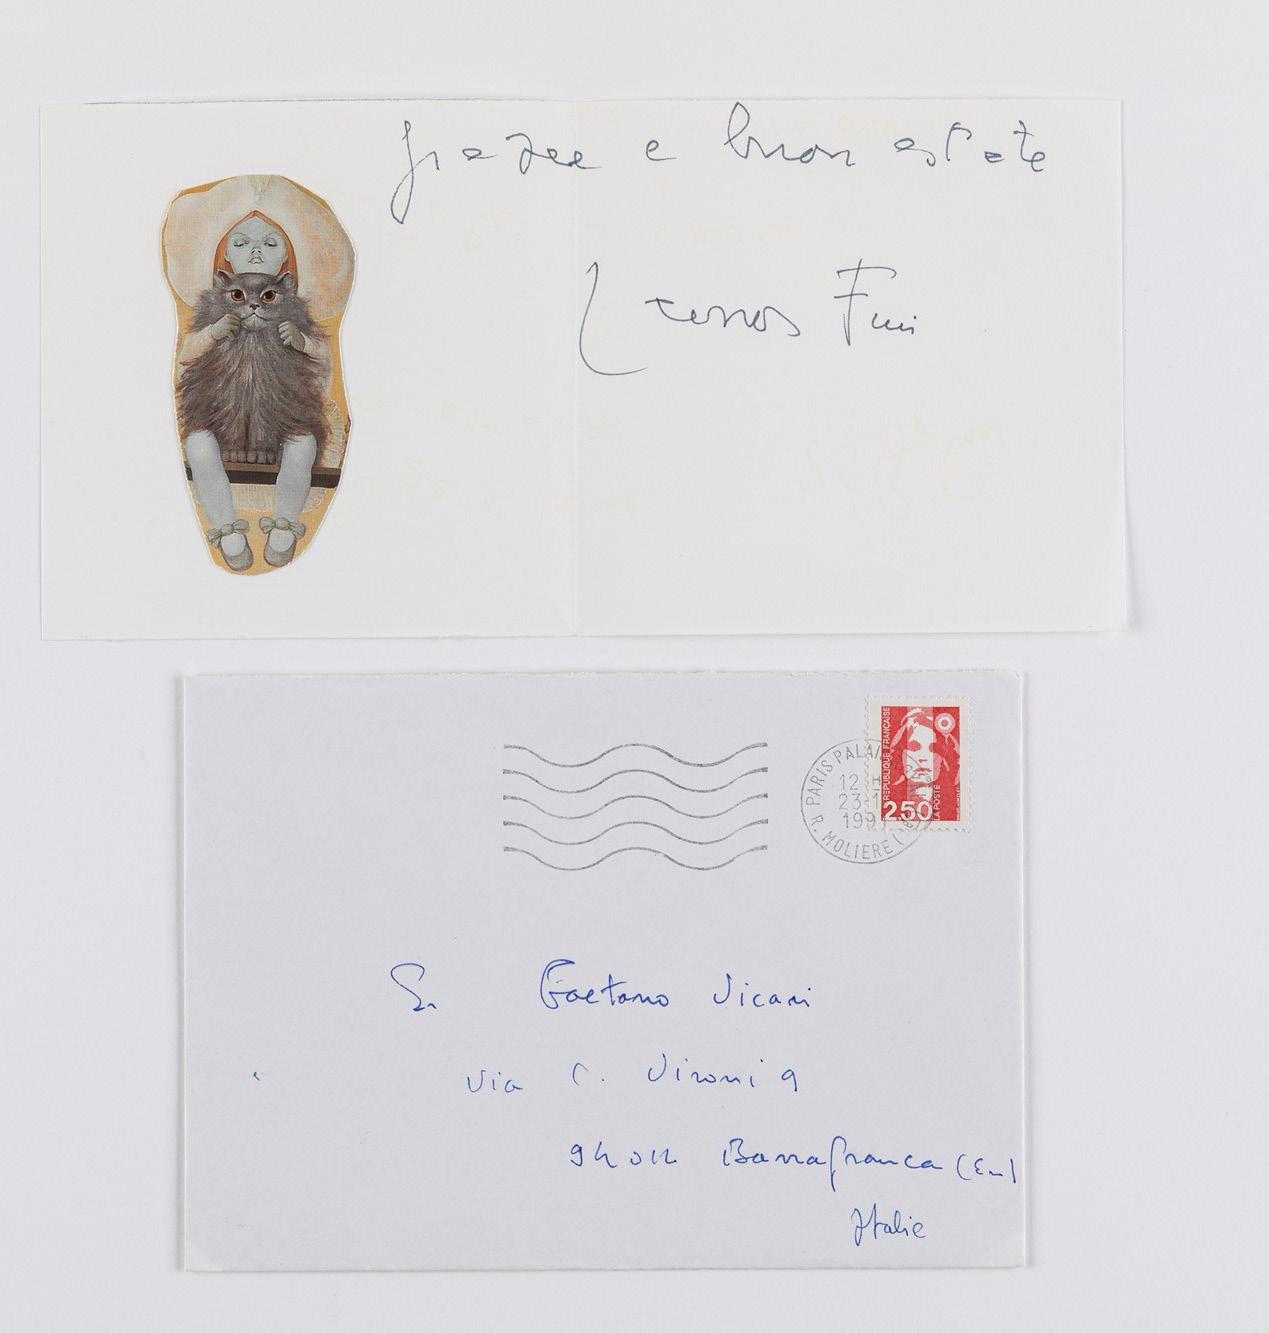 grazie e buon estate
Leonor Fini
REPUBLIQUE FRANÇAISE
2.50
LA POSTE
PARIS PALAIS
12 H
23-1
199
R. MOLIERE (
Sr Gaetano Vicari
Via C. Vironi 9
94012 Barrafranca (En)
Italie